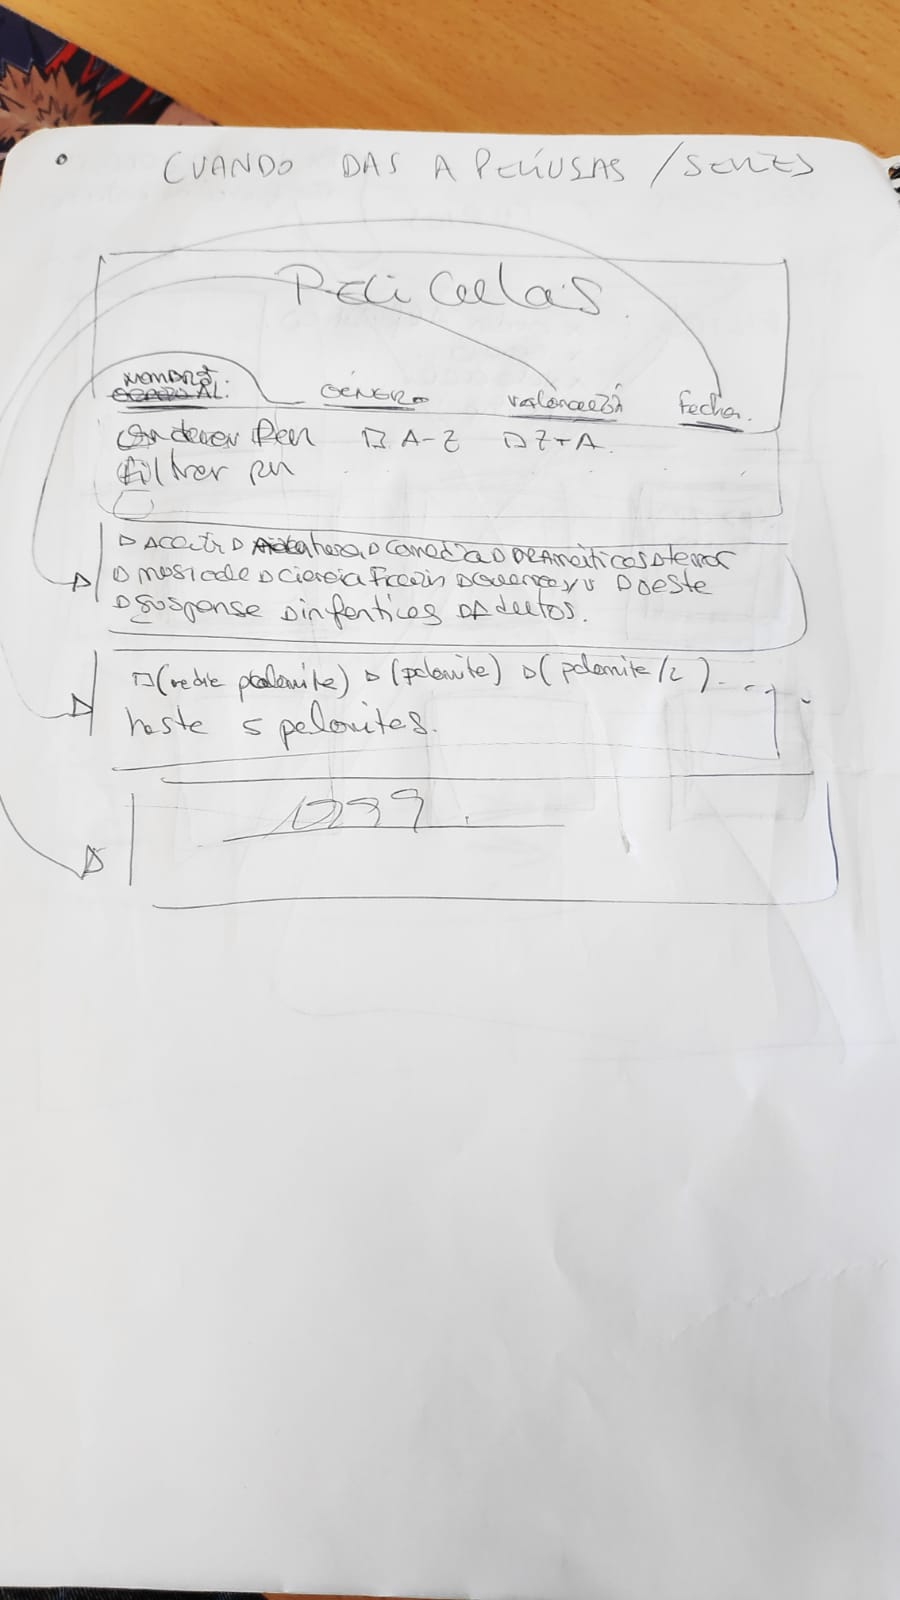 CUANDO DAS A PELÍCULAS / SERIES
PELiCulas.
NOMBRE. GÉNERO Valoración Fecha.
Ordenar Por □ A-Z □ Z-A.
filtrar por
▷ Acción ▷ ▷ Comedia ▷ DRAmáticas ▷ terror
▷ musicale ▷ Ciencia Ficción ▷ ▷ oeste
▷ suspense ▷ infantiles ▷ Adultos.
□ (media palomita) ▷ (palomita) ▷ (palomita/2)....
hasta 5 palomitas.
1999.